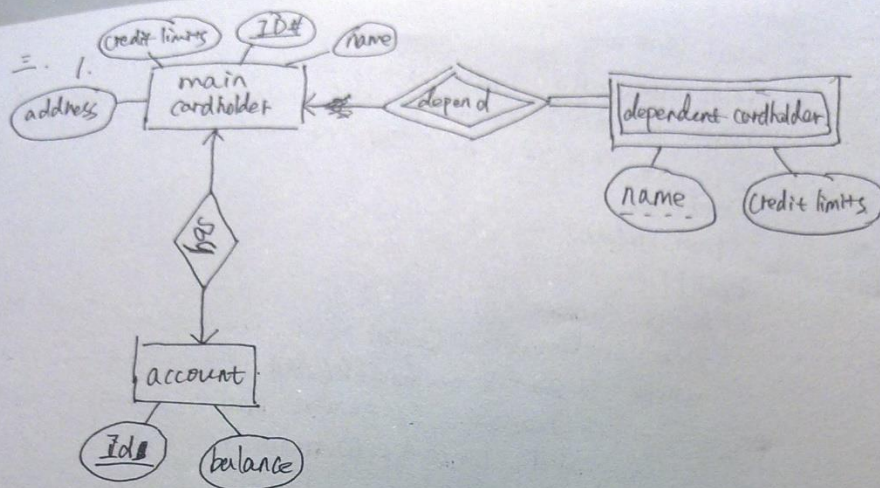 三. 1.
credit limits
ID#
name
address
main
cardholder
depend
dependent cardholder
name
credit limits
account
Id
balance